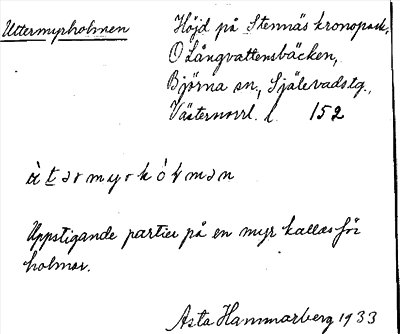 Uttermyrholmen
Höjd på Stennäs kronopark,
O Långvattensbäcken,
Björna sn., Själevads tg.,
Västernorrl. l. 152
Uppstigande partier på en myr kallas för
holmar.
Asta Hammarberg 1933